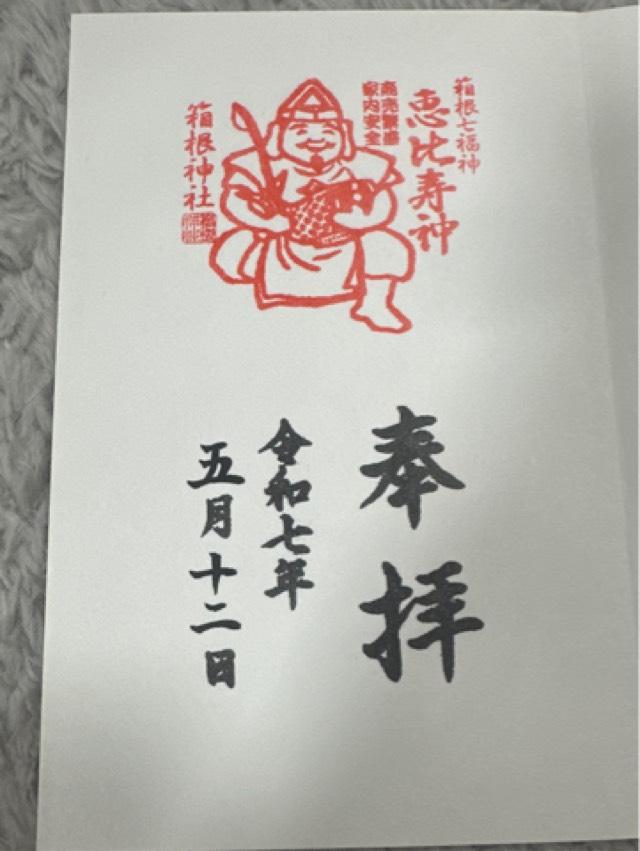 箱根七福神
恵比寿神
商売繁盛
家内安全
箱根神社
奉拝
令和七年
五月十二日